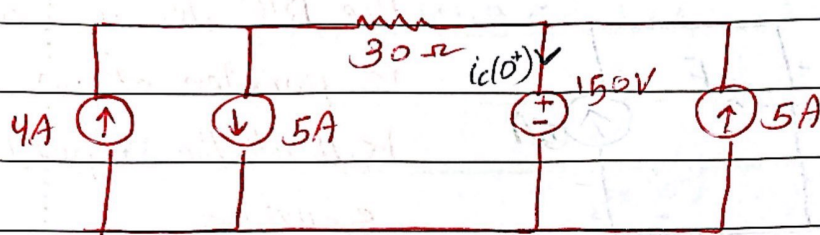 30 Ω
ic(0⁺)
150V
4A
5A
+
-
5A